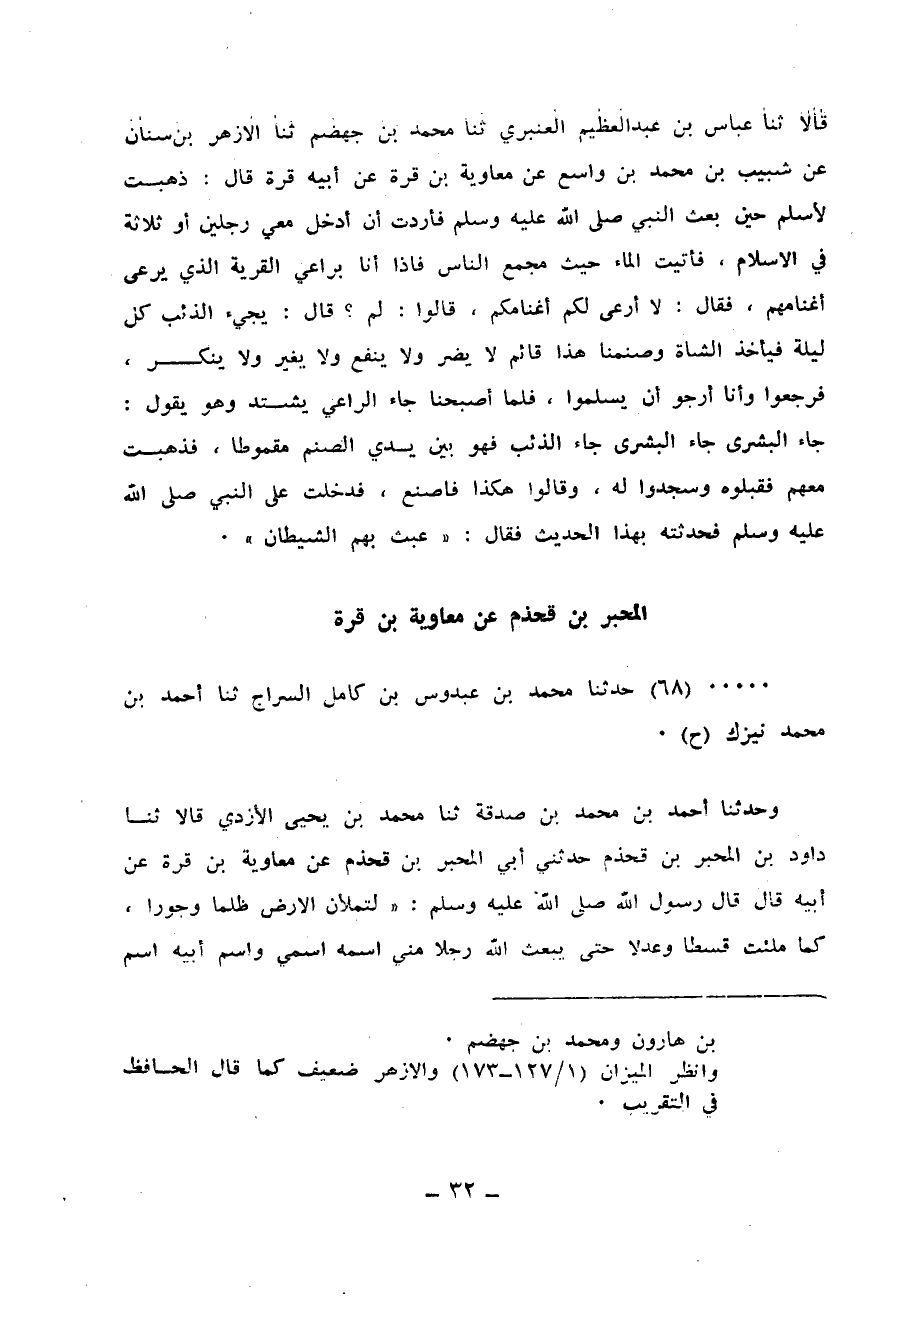 قالا ثنا عباس بن عبدالعظيم العنبري ثنا محمد بن جهضم ثنا الازهر بن سنان
عن شبيب بن محمد بن واسع عن معاوية بن قرة عن أبيه قرة قال : ذهبت
لأسلم حين بعث النبي صلى الله عليه وسلم فأردت أن أدخل معي رجلين أو ثلاثة
في الاسلام ، فأتيت الماء حيث مجمع الناس فاذا أنا براعي القرية الذي يرعى
أغنامهم ، فقال : لا أرعى لكم أغنامكم ، قالوا : لم ؟ قال : يجيء الذئب كل
ليلة فيأخذ الشاة وصنمنا هذا قائم لا يضر ولا ينفع ولا يغير ولا ينكر ،
فرجعوا وأنا أرجو أن يسلموا ، فلما أصبحنا جاء الراعي يشتد وهو يقول :
جاء البشرى جاء البشرى جاء الذئب فهو بين يدي الصنم مقموطا ، فذهبت
معهم فقبلوه وسجدوا له ، وقالوا هكذا فاصنع ، فدخلت على النبي صلى الله
عليه وسلم فحدثته بهذا الحديث فقال : « عبث بهم الشيطان » .
المحبر بن قحذم عن معاوية بن قرة
..... (٦٨) حدثنا محمد بن عبدوس بن كامل السراج ثنا أحمد بن
محمد نيزك (ح) .
وحدثنا أحمد بن محمد بن صدقة ثنا محمد بن يحيى الأزدي قالا ثنا
داود بن المحبر بن قحذم حدثني أبي المحبر بن قحذم عن معاوية بن قرة عن
أبيه قال قال رسول الله صلى الله عليه وسلم : « لتملأن الارض ظلما وجورا ،
كما ملئت قسطا وعدلا حتى يبعث الله رجلا مني اسمه اسمي واسم أبيه اسم
بن هارون ومحمد بن جهضم .
وانظر الميزان (١/١٢٧-١٧٣) والازهر ضعيف كما قال الحافظ
في التقريب .
- ٣٢ -